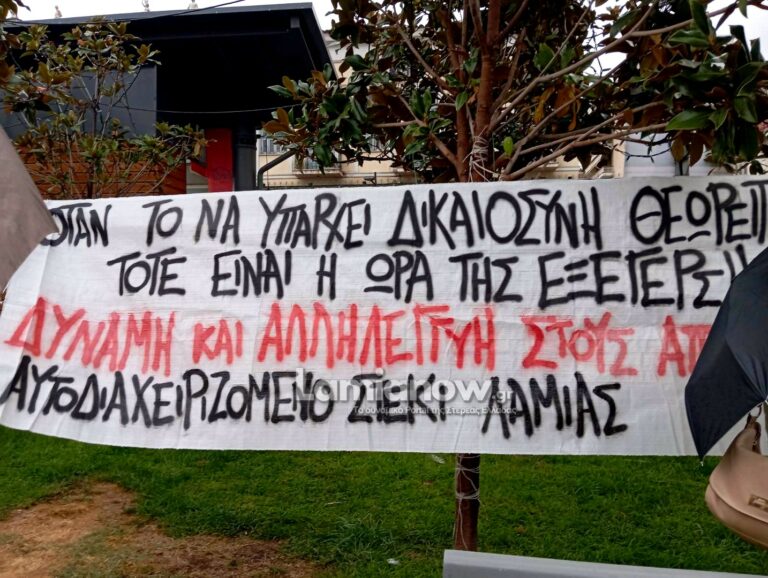 ΟΤΑΝ ΤΟ ΝΑ ΥΠΑΡΧΕΙ ΔΙΚΑΙΟΣΥΝΗ ΘΕΩΡΕΙΤ
ΤΟΤΕ ΕΙΝΑΙ Η ΩΡΑ ΤΗΣ ΕΞΕΓΕΡΣ
ΔΥΝΑΜΗ ΚΑΙ ΑΛΛΗΛΕΓΓΥΗ ΣΤΟΥΣ ΑΠ
ΑΥΤΟΔΙΑΧΕΙΡΙΖΟΜΕΝΟ ΣΤΕΚΙ ΛΑΜΙΑΣ
Lamianow.gr
Το δυναμικό Portal της Στερεάς Ελλάδας